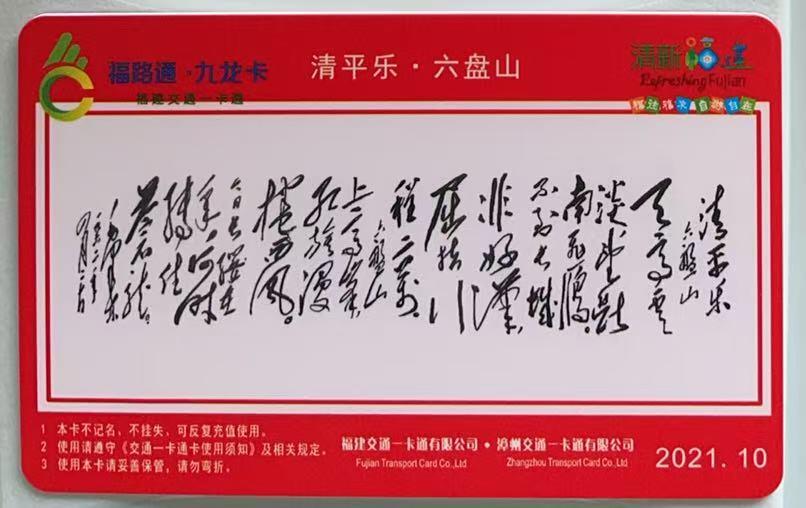 福路通·九龙卡
福建交通一卡通
清平乐·六盘山
清新福建
Refreshing Fujian
福往福来 自游自在
清平樂
六盤山
天高雲
淡，望斷
南飛雁。
不到長城
非好漢，
屈指行
程二萬。
六盤山
上高峯，
紅旗漫
捲西風。
今日長纓在
手，何時
縛住
蒼龍？
毛澤東
1 本卡不记名、不挂失、可反复充值使用。
2 使用请遵守《交通一卡通卡使用须知》及相关规定。
3 使用本卡请妥善保管，请勿弯折。
福建交通一卡通有限公司 • 漳州交通一卡通有限公司
Fujian Transport Card Co.,Ltd Zhangzhou Transport Card Co.,Ltd
2021.10